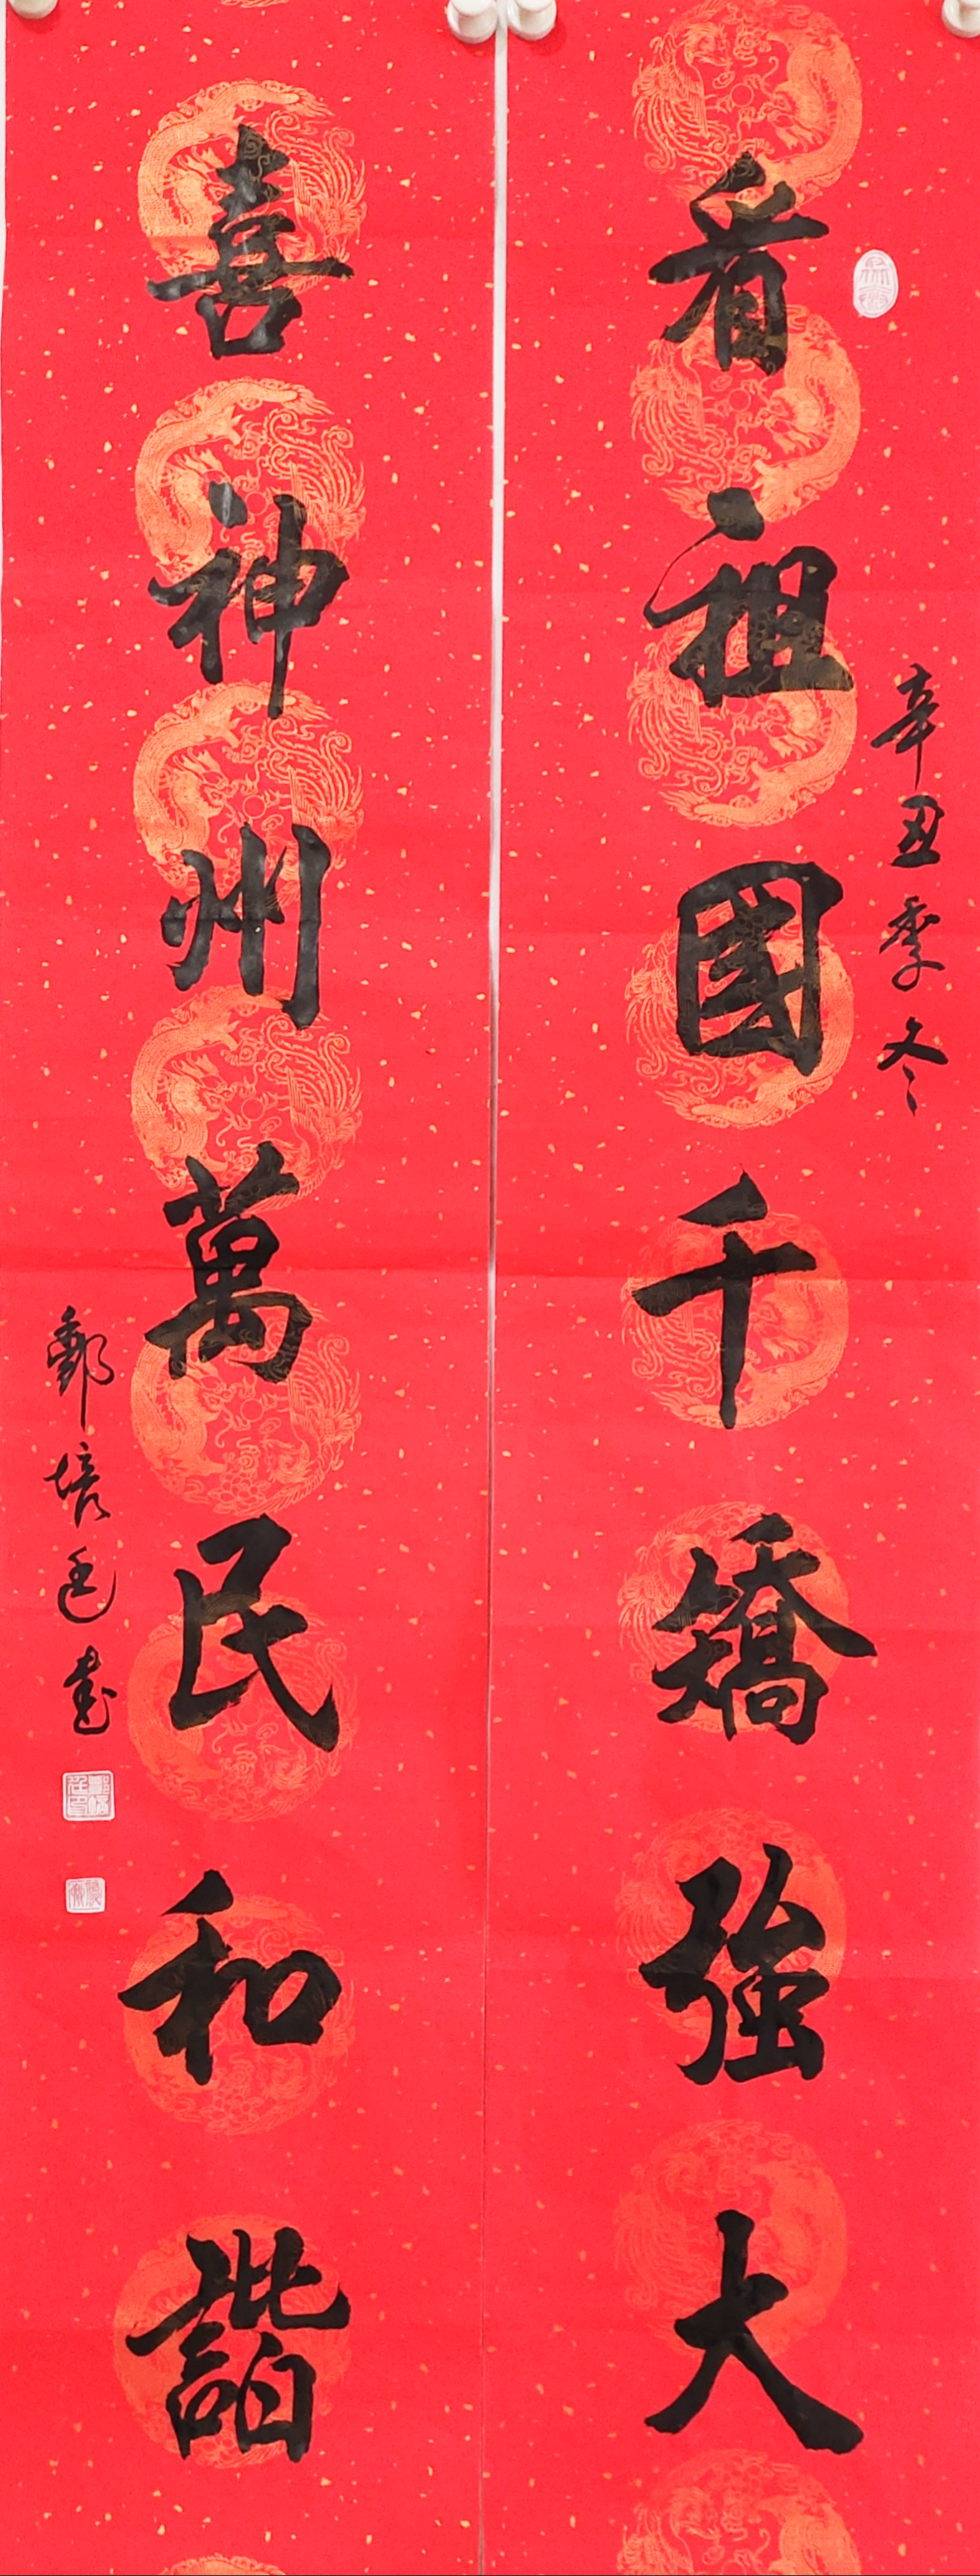 辛丑季冬
看祖國千矯強大
喜神州萬民和諧
鄭培廷書